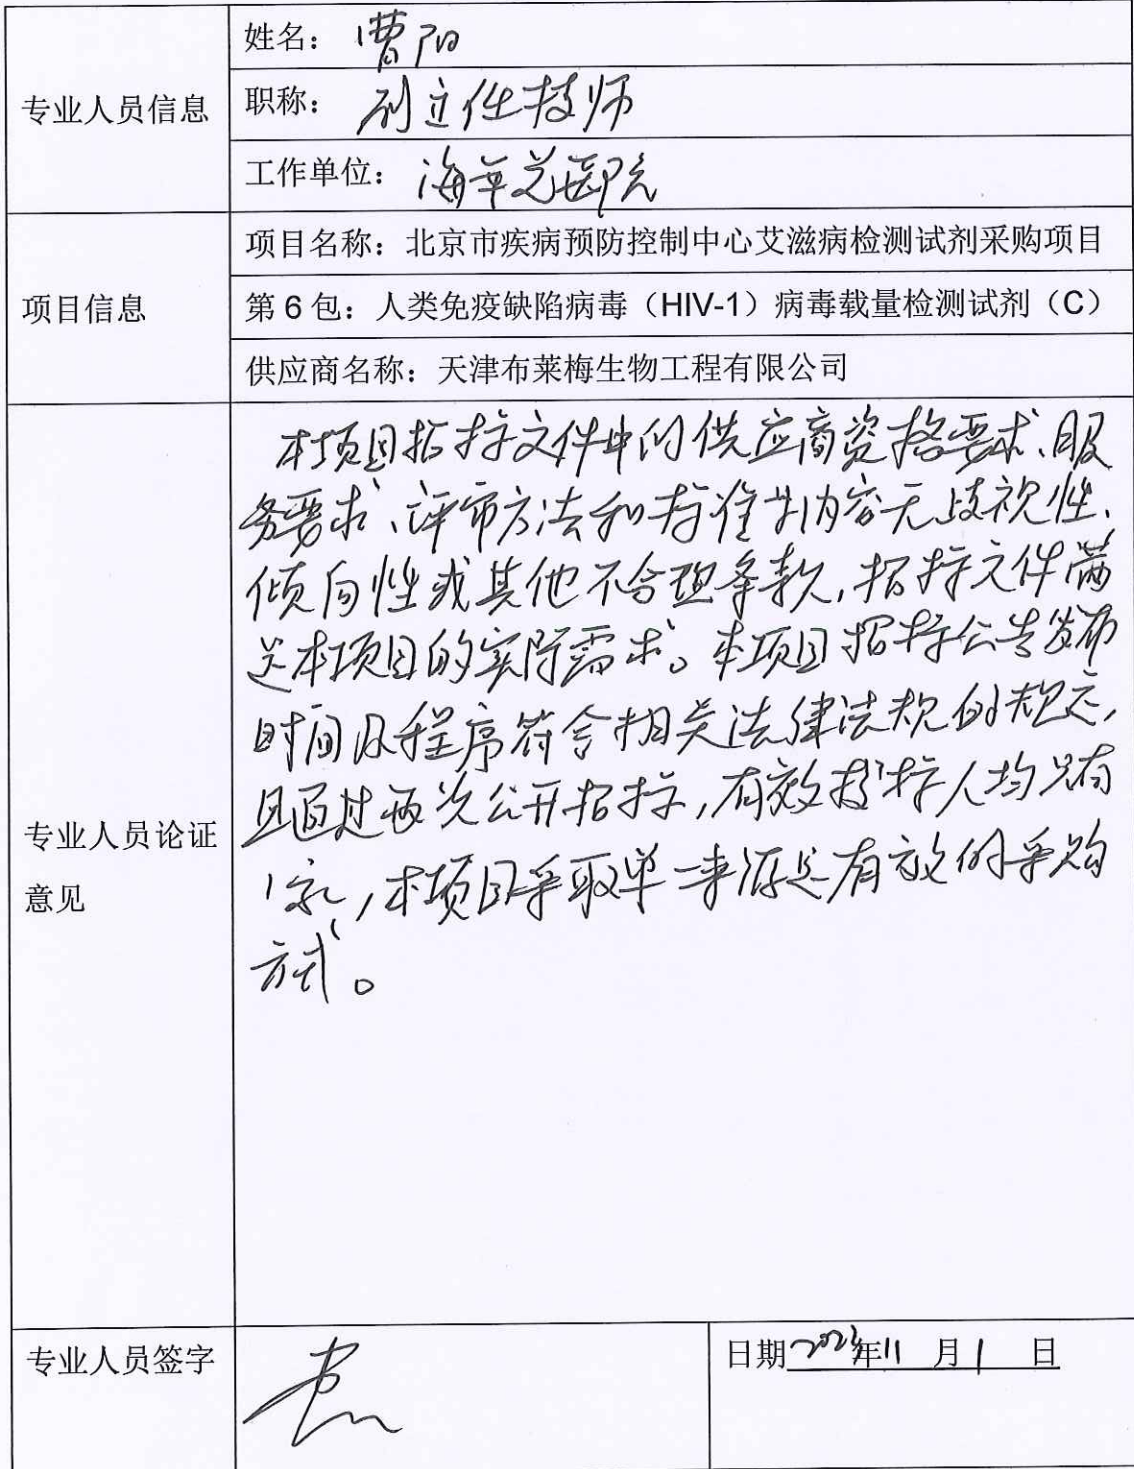 专业人员信息
姓名：曹阳
职称：副主任技师
工作单位：海军总医院
项目信息
项目名称：北京市疾病预防控制中心艾滋病检测试剂采购项目
第6包：人类免疫缺陷病毒（HIV-1）病毒载量检测试剂（C）
供应商名称：天津布莱梅生物工程有限公司
专业人员论证
意见
本项目招标文件中的供应商资格要求、服
务要求、评审方法和标准等内容无歧视性、
倾向性或其他不合理条款，招标文件满
足本项目的实际需求。本项目招标公告发布
时间及程序符合相关法律法规的规定，
且通过两次公开招标，有效投标人均只有
1家，本项目采取单一来源是有效的采购
方式。
专业人员签字
日期2023年11月1日